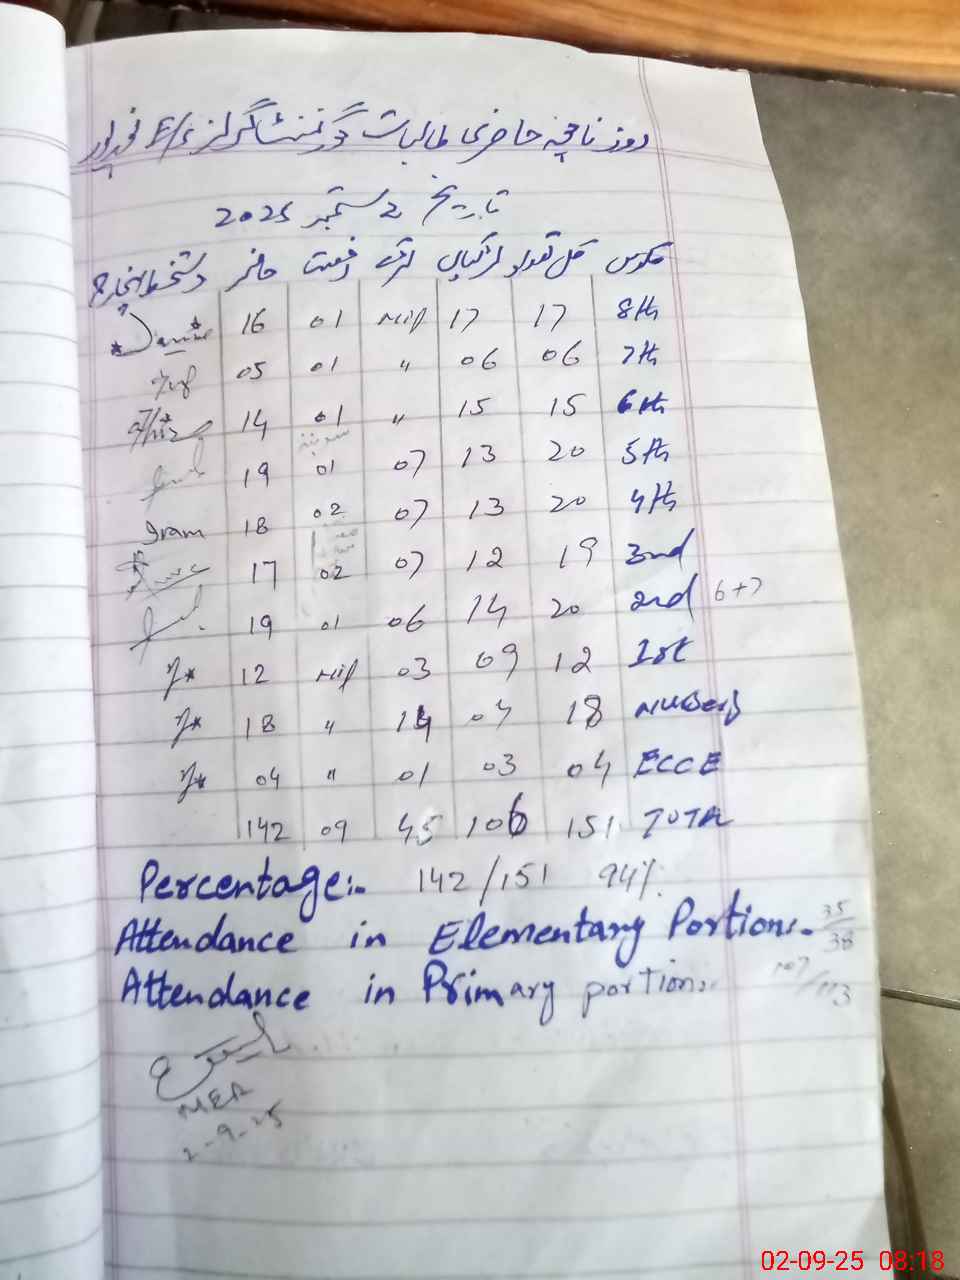 روزنامچہ حاضری طالبات گورنمنٹ گرلز E/S
تاریخ 2 ستمبر 2025
کلاس کل تعداد لڑکیاں لڑکے رخصت حاضر دستخط انچارج
8th 17 17 Nil 01 16
7th 06 06 " 01 05
6th 15 15 " 01 14
5th 20 13 07 01 19
4th 20 13 07 02 18 Iram
3nd 19 12 07 02 17
2nd 20 14 06 01 19 6+7
1st 12 09 03 Nil 12
Nursery 18 04 14 " 18
ECCE 04 03 01 " 04
TOTA 151 106 45 09 142
Percentage:- 142/151 94%
Attendance in Elementary Portion:- 35/38
Attendance in Primary portion:- 107/113
MEA
2-9-25
02-09-25 08:18